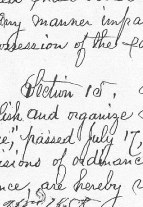 any manner impa
ossession of the
Section 15.
lish and organize
ce," passed July 17,
sions of ordinanc
nce, are hereby